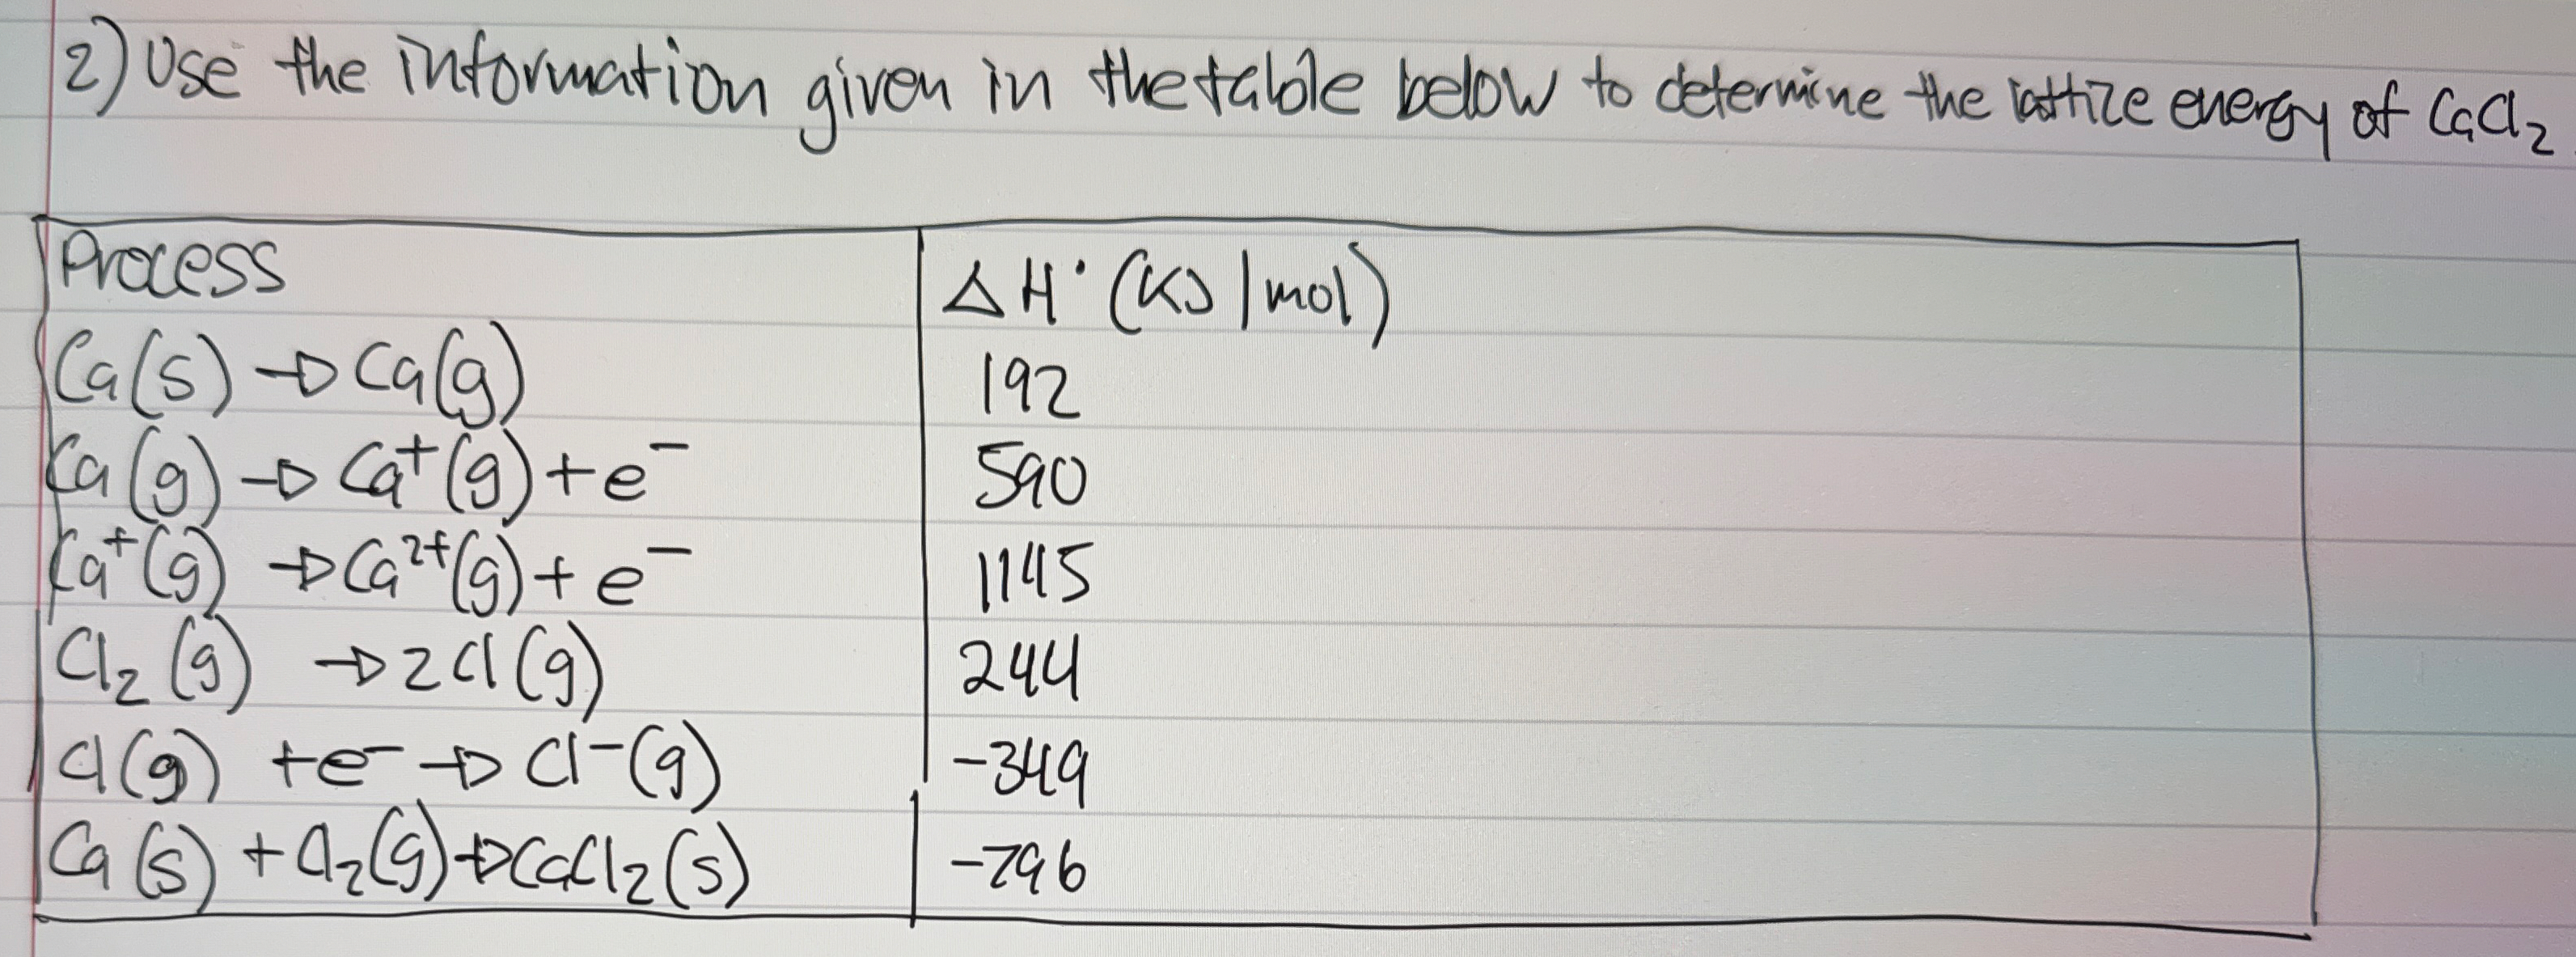 2) Use the information given in the table below to determine the lattize energy of CaCl₂.
Process ΔH° (KJ/mol)
Ca(s) → Ca(g) 192
Ca(g) → Ca⁺(g) + e⁻ 590
Ca⁺(g) → Ca²⁺(g) + e⁻ 1145
Cl₂(g) → 2Cl(g) 244
Cl(g) + e⁻ → Cl⁻(g) -349
Ca(s) + Cl₂(g) → CaCl₂(s) -796